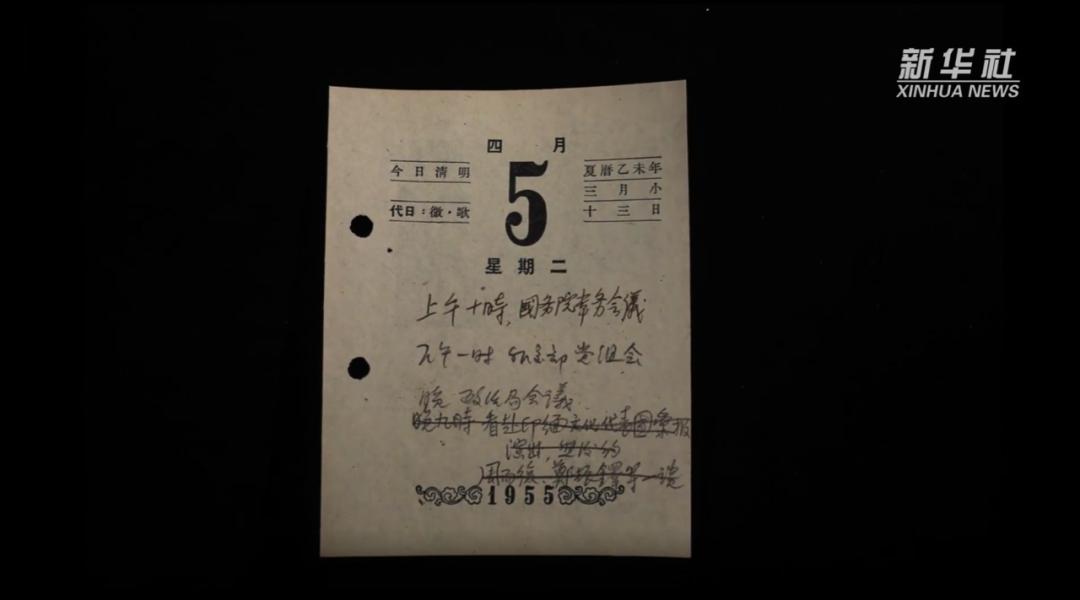 新华社
XINHUA NEWS
四 月
今日清明
代日：微·歌
5
夏曆乙未年
三月小
十三日
星期二
上午十時，國务院常务会議
下午一时 外交部党组会
晚 政治局会議
晚九時 看赴印缅文化代表團彙报
演出，
周而復、鄭振鐸等一談
1955